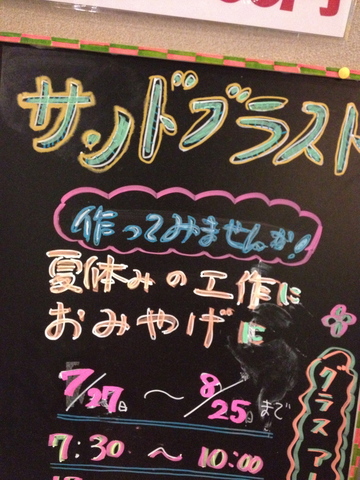 円
サンドブラスト
作ってみませんか!
夏休みの工作に
おみやげに
7/27日 〜 8/25日まで
7:30 〜 10:00
グラスア